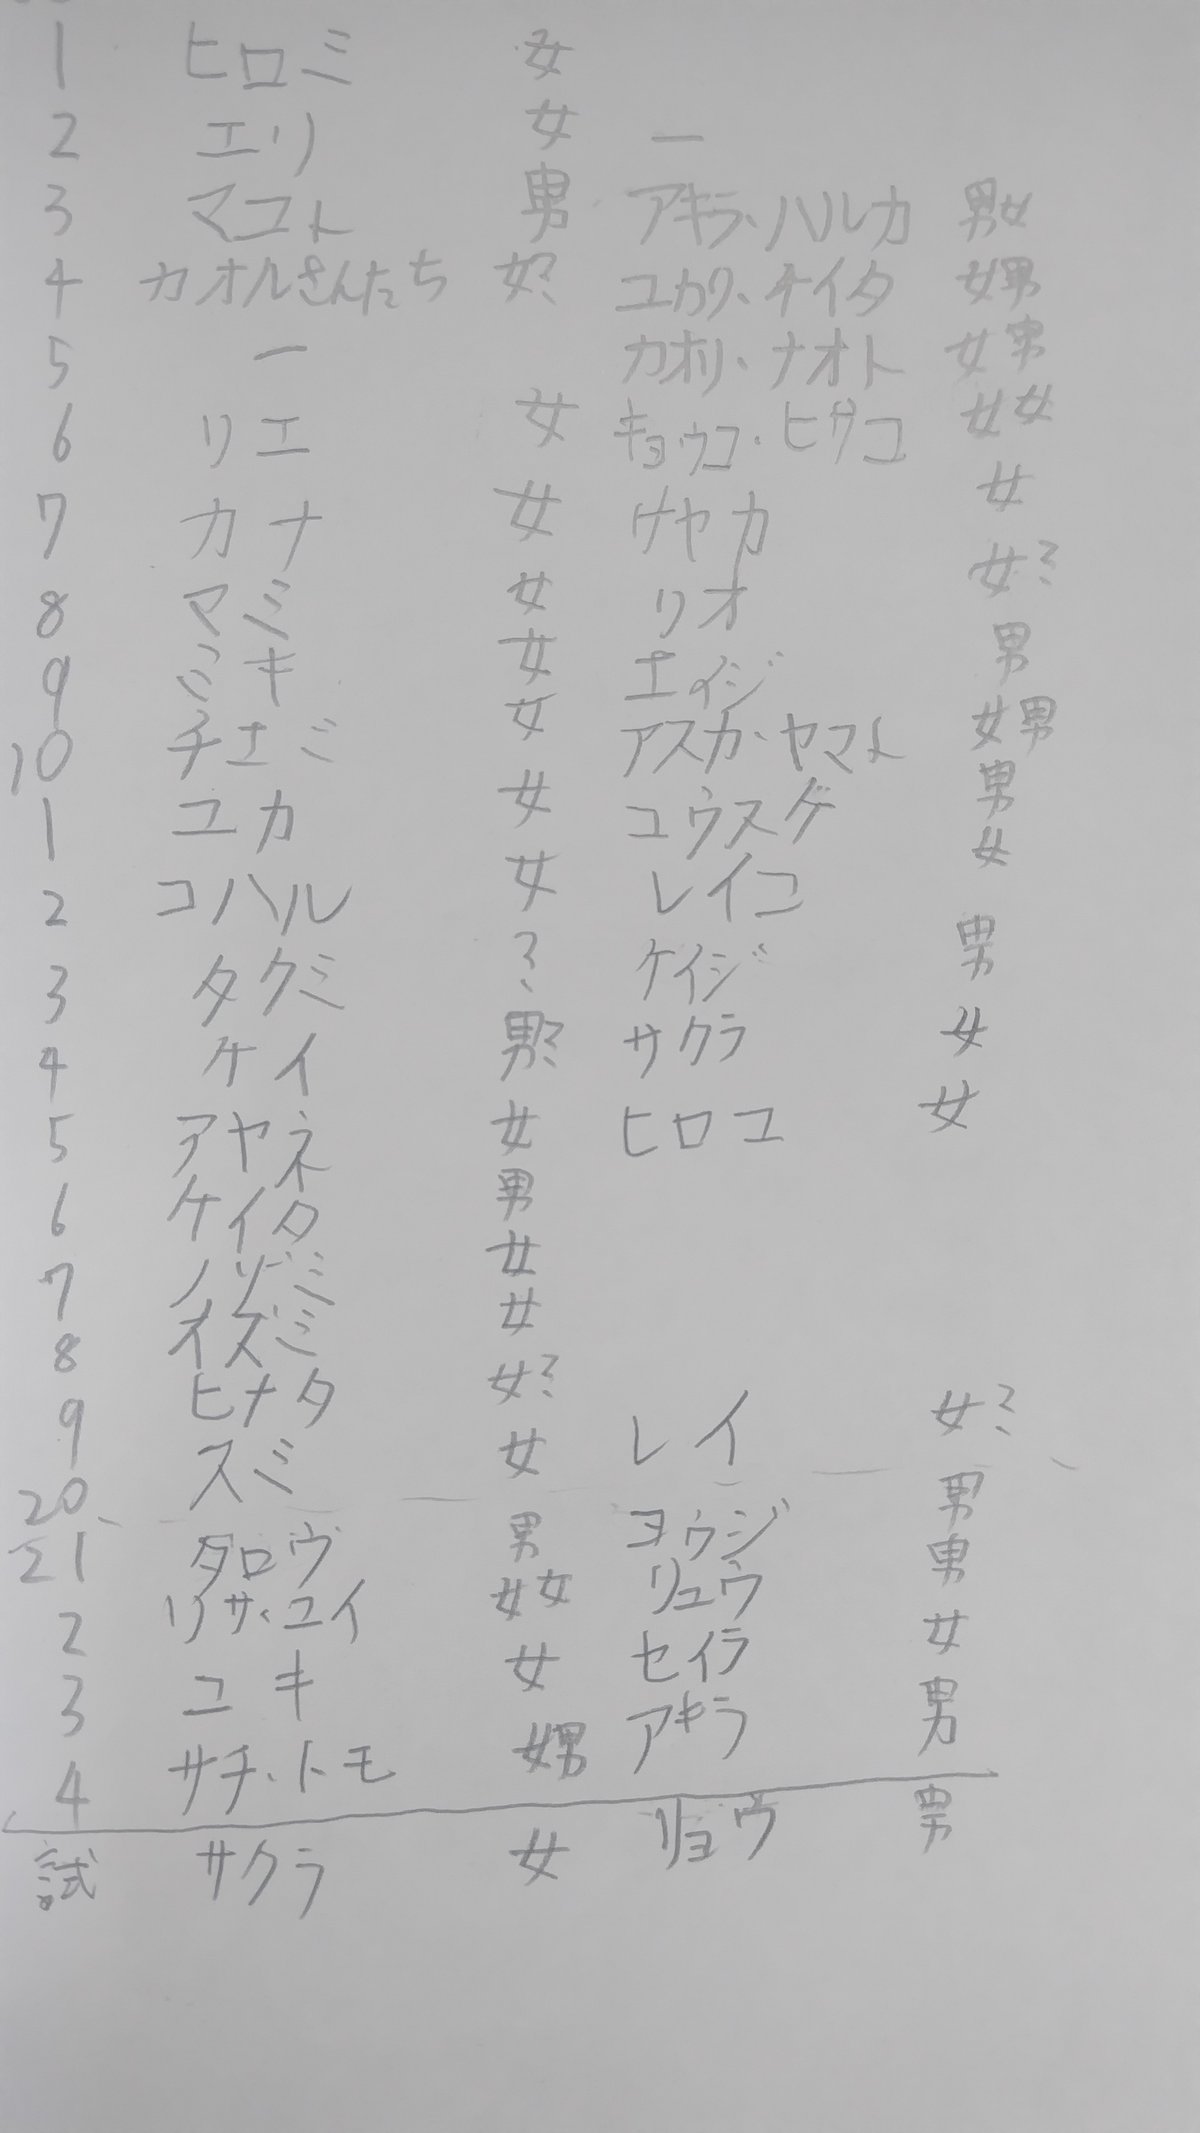 1 ヒロミ 女
2 エリ 女 ー
3 マコト 男 アキラ・ハルカ 男女
4 カオルさんたち 女? ユカリ・ケイタ 女男
5 ー カオリ・ナオト 女男
6 リエ 女 キョウコ・ヒサコ 女女
7 カナ 女 サヤカ 女
8 マミ 女 リオ 女?
9 ミキ 女 エイジ 男
10 チエミ 女 アスカ・ヤマト 女男
1 ユカ 女 コウスケ 男
2 コハル 女 レイコ 女
3 タクミ ? ケイジ 男
4 ケイ 男? サクラ 女
5 アヤネ 女 ヒロコ 女
6 ケイタ 男
7 ノゾミ 女
8 イズミ 女
9 ヒナタ 女?
20 スミ 女 レイ 女?
21 タロウ 男 ヨウジ 男
2 リサ・ユイ 女女 リュウ 男
3 ユキ 女 セイラ 女
4 サチ・トモ 女男 アキラ 男
試 サクラ 女 リョウ 男